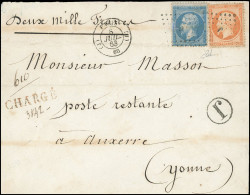 Deux Mille Francs
Monsieur Masson
610
CHARGÉ
poste restante
J
à Auxerre
(Yonne)